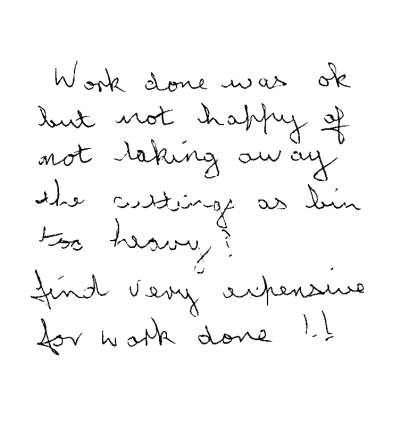 Work done was ok
but not happy of
not taking away
the cuttings as bin
too heavy!
find very expensive
for work done !!